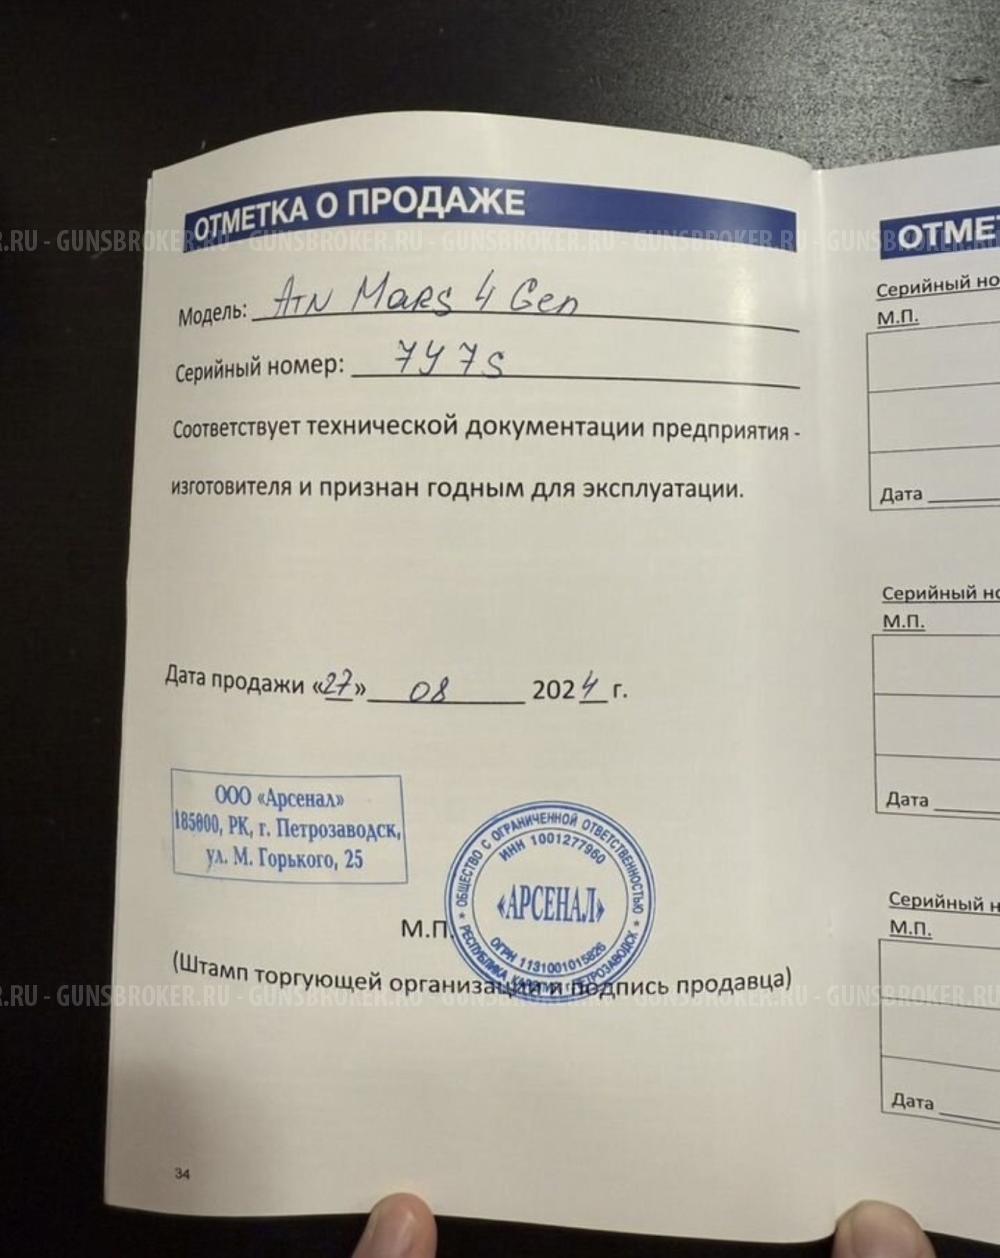 ОТМЕТКА О ПРОДАЖЕ
Модель: ATN MARS 4 Gen
Серийный номер: 7Y7S
Соответствует технической документации предприятия -
изготовителя и признан годным для эксплуатации.
Дата продажи «27» 08 2024 г.
ООО «Арсенал»
185000, РК, г. Петрозаводск,
ул. М. Горького, 25
ОБЩЕСТВО С ОГРАНИЧЕННОЙ ОТВЕТСТВЕННОСТЬЮ
ИНН 1001277960
«АРСЕНАЛ»
ОГРН 1131001015826
РЕСПУБЛИКА КАРЕЛИЯ г. ПЕТРОЗАВОДСК
М.П.
(Штамп торгующей организации и подпись продавца)
34
ОТМЕ
Серийный но
М.П.
Дата
Серийный но
М.П.
Дата
Серийный н
М.П.
Дата
.RU - GUNSBROKER.RU - GUNSBROKER.RU - GUNSBROKER.RU - GUNSBROKER.RU - GUNSBROKER.RU
.RU - GUNSBROKER.RU - GUNSBROKER.RU - GUNSBROKER.RU - GUNSBROKER.RU - GUNSBROKER.RU